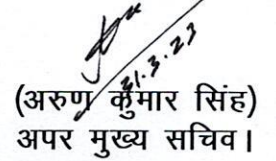 31.3.23
(अरुण कुमार सिंह)
अपर मुख्य सचिव।